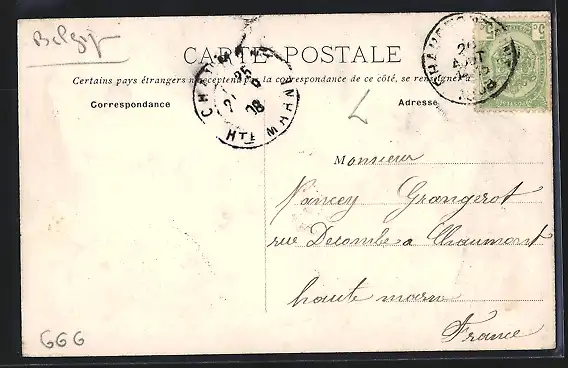 Belgiq
CARTE POSTALE
Certains pays étrangers n'acceptent pas la correspondance de ce côté, se renseigner à la
Correspondance
Adresse
CHAUMONT
25
08
HTE MARNE
20
AOUT
1908
Monsieur
Nancey Grangerot
rue Decombe a Chaumont
haute marne
France
666